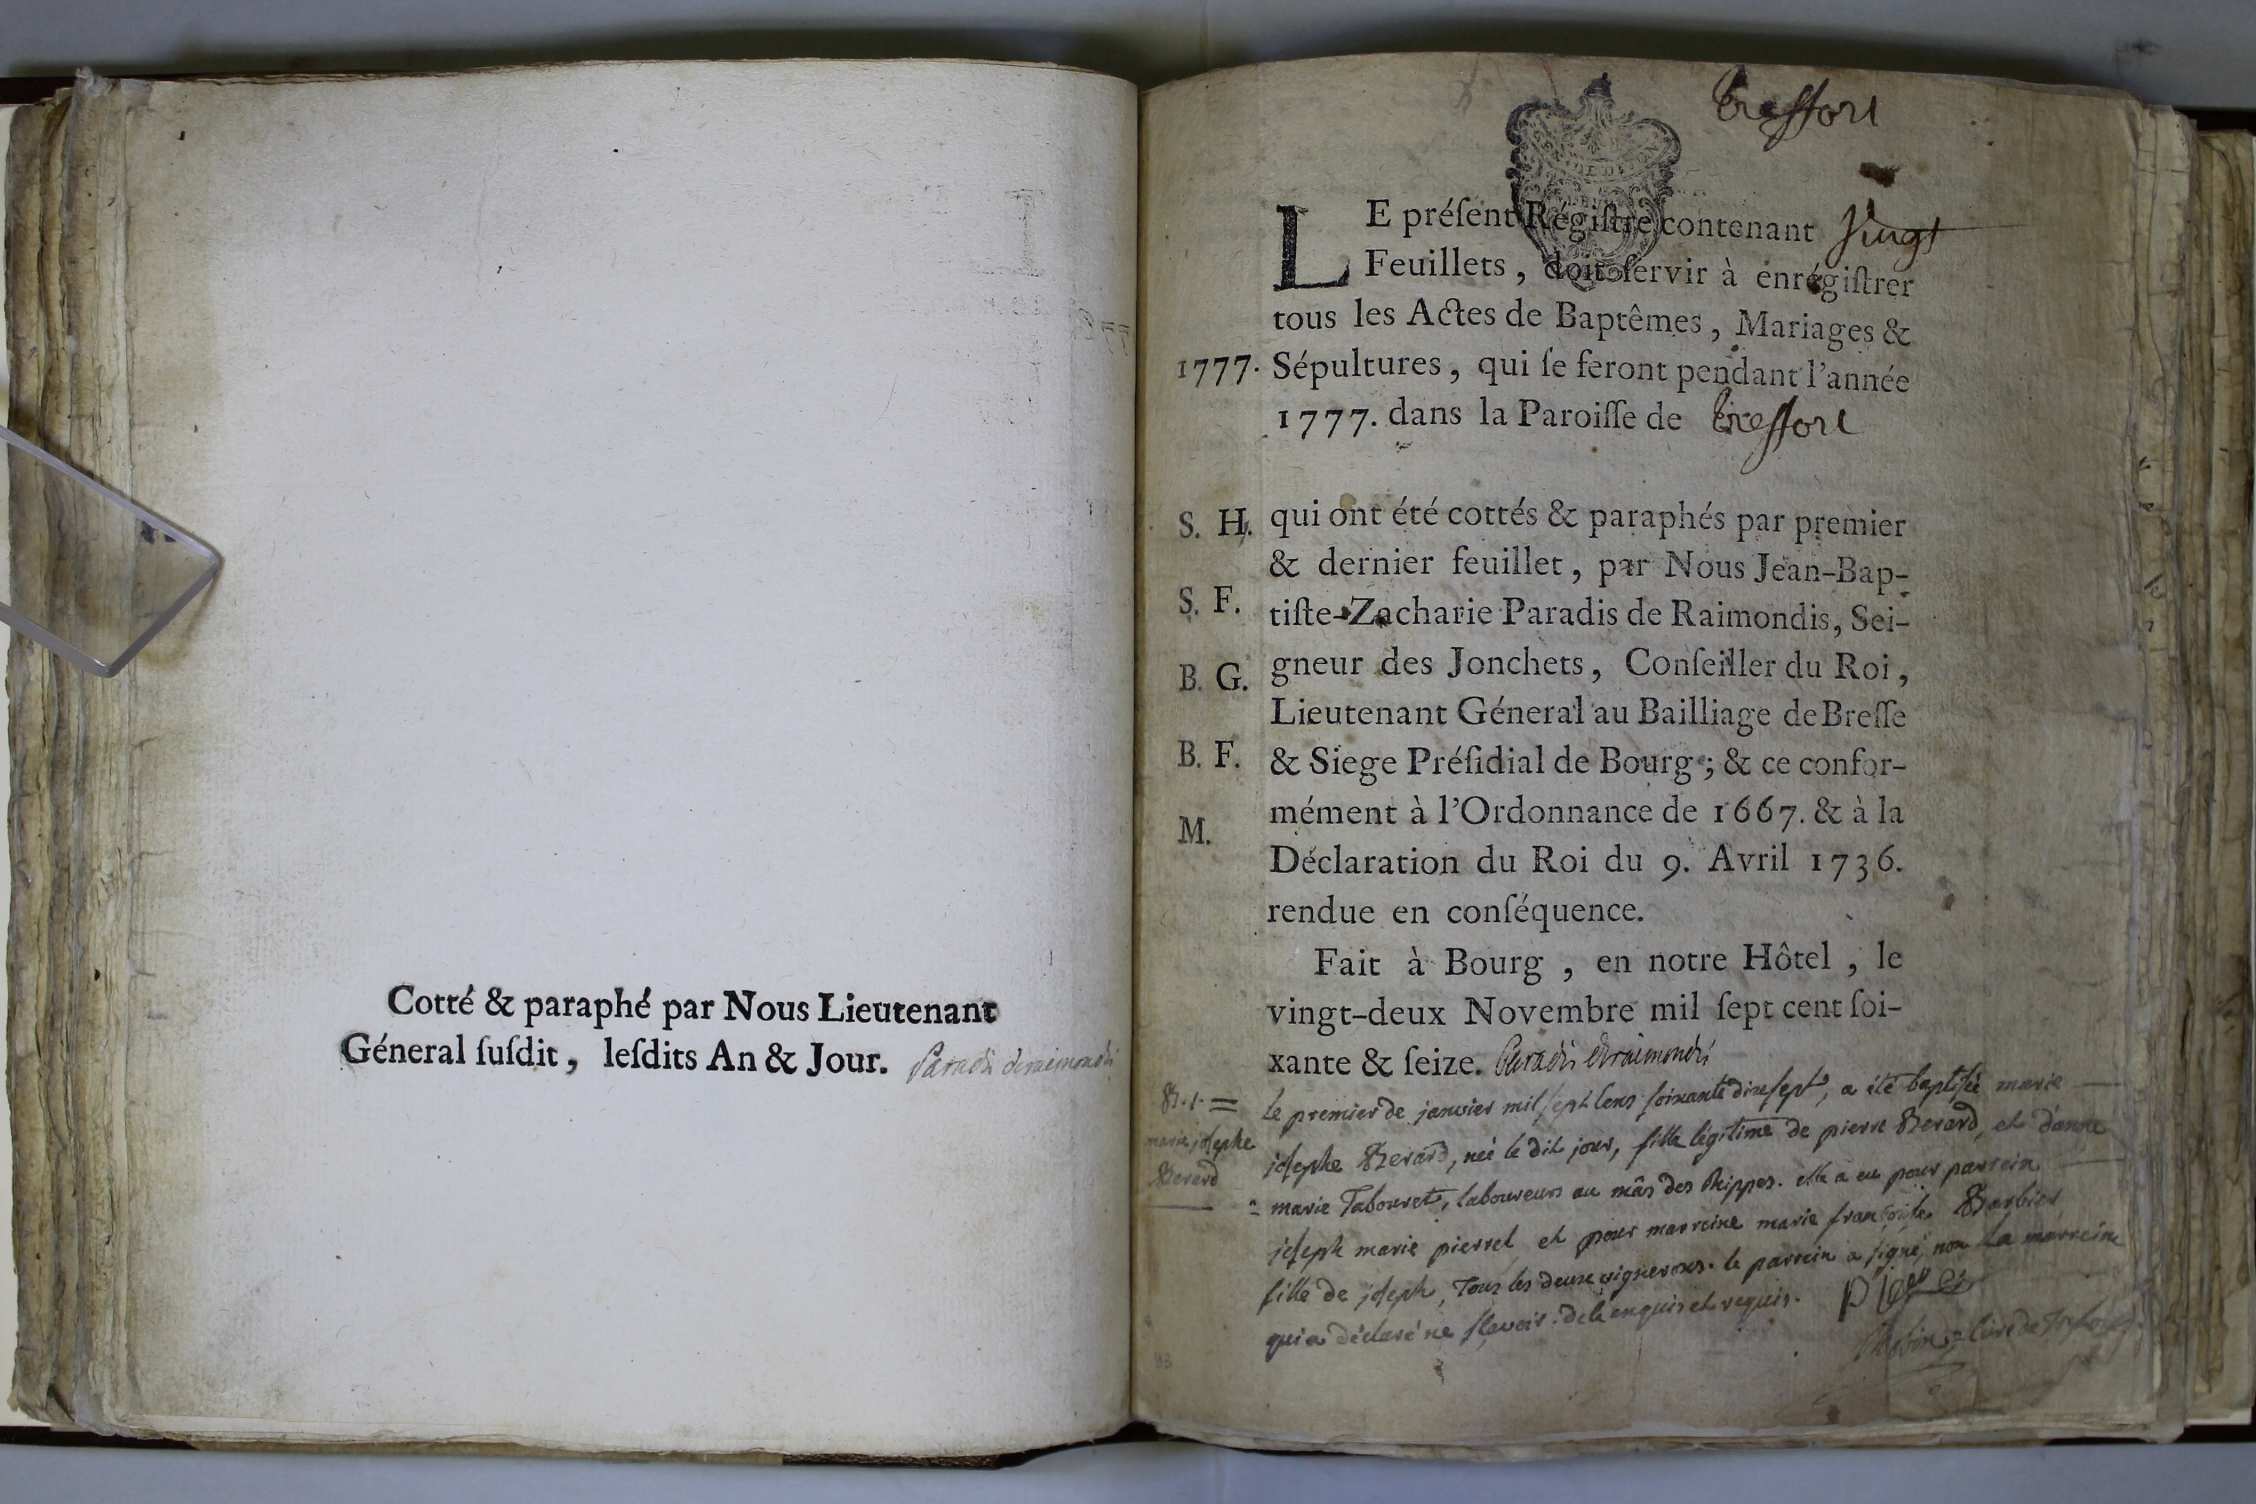 Cotté & paraphé par Nous Lieutenant
Géneral ſuſdit, leſdits An & Jour. Paradis deraimondis
Treffort
LE préſent Régiſtre contenant Vingt
Feuillets, doit ſervir à enrégiſtrer
tous les Actes de Baptêmes, Mariages &
1777. Sépultures, qui ſe feront pendant l'année
1777. dans la Paroiſſe de Treffort
S. H. qui ont été cottés & paraphés par premier
& dernier feuillet, par Nous Jean-Bap-
S. F. tiſte-Zacharie Paradis de Raimondis, Sei-
B. G. gneur des Jonchets, Conſeiller du Roi,
Lieutenant Géneral au Bailliage de Breſſe
B. F. & Siege Préſidial de Bourg; & ce confor-
mément à l'Ordonnance de 1667. & à la
M. Déclaration du Roi du 9. Avril 1736.
rendue en conſéquence.
Fait à Bourg, en notre Hôtel, le
vingt-deux Novembre mil ſept cent ſoi-
xante & ſeize. Paradis deraimondis
B. 1. =
marie josephe
Berard
Le premier de janvier mil sept cens soixante dixsept, a été baptisée marie
josephe Berard, née le dit jour, fille légitime de pierre Berard, et d'anne
marie Tabouret, laboureurs au mâs des Rippes. elle a eu pour parrein
joseph marie pierrel et pour marreine marie françoise Barbier
fille de joseph, Tous les deux vignerons. le parrein a signé, non La marreine
qui a déclaré ne sçavoir. de ce enquis et requis.